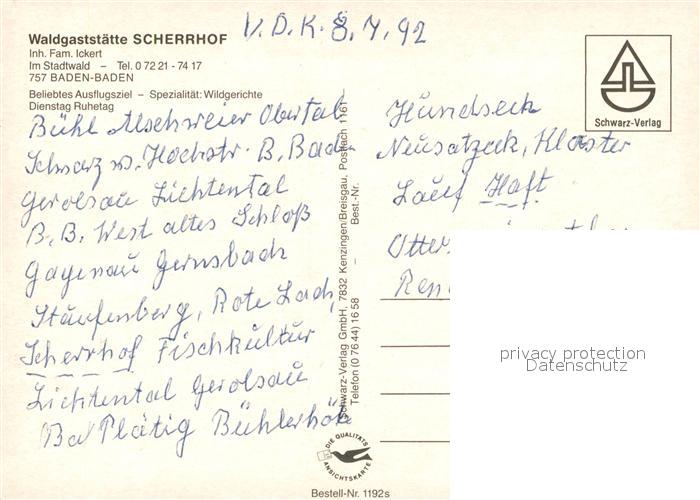 Waldgaststätte SCHERRHOF
Inh. Fam. Ickert
Im Stadtwald – Tel. 0 72 21 - 74 17
757 BADEN-BADEN
Beliebtes Ausflugsziel – Spezialität: Wildgerichte
Dienstag Ruhetag
V.D.K. 8.7.92
Bühl Altschweier Obertal
Schwarzw. Hochstr. B. Baden
Gerolsau Lichtental
B.B. West altes Schloß
Gagenau Gernsbach
Staufenberg, Rote Lach,
Scherrhof Fischkultur
Lichtental Gerolsau
Plätig Bühlerhöhe
Schwarz-Verlag GmbH, 7832 Kenzingen/Breisgau, Postfach 1161
Telefon (0 76 44) 16 58 – Best.-Nr.
DIE QUALITÄTS
ANSICHTSKARTE
Bestell-Nr. 1192s
Schwarz-Verlag
Hundseck
Neusatzeck, Kloster
Lauf Haft
privacy protection
Datenschutz